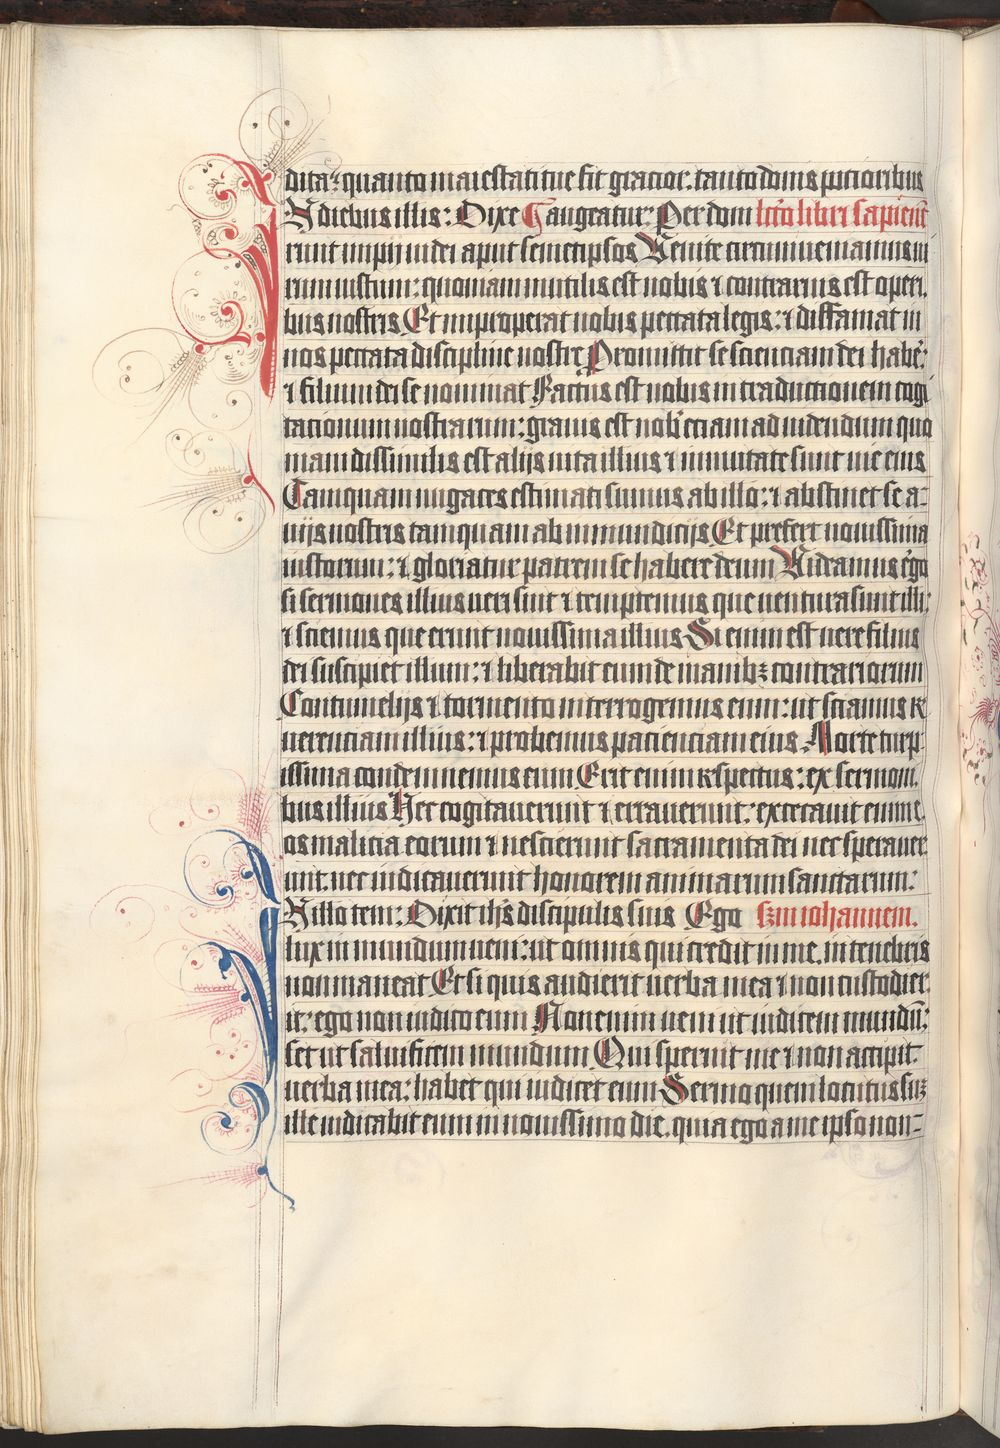 dita: quanto maiestati tue fit gracior: tanto donis pocioribus
N diebus illis: Dixe augeatur: Per dom lccō libri sapient̄
runt impij iudei aput semetipsos Venite circumueniamus iu
rum iustum: quoniam inutilis est nobis ⁊ contrarius est operi.
bus nostris Et improperat nobis peccata legis: ⁊ diffamat in
nos peccata discipline nostre Promittit se scienciam dei habe͛:
⁊ filium dei se nominat Factus est nobis in traductionem cogi
tacionum nostrarum: grauis est nob̾ eciam ad uidendum quo
niam dissimilis est alijs uita illius ⁊ inmutate sunt uie eius
Tamquam nugaces estimati sumus ab illo: ⁊ abstinet se a-
uijs nostris tamquam ab inmundicijs Et prefert nouissima
iustorum: ⁊ gloriatur patrem se habere deum Videamus ergo
si sermones illius ueri sint ⁊ temptemus que uentura sunt illi:
⁊ sciemus que erunt nouissima illius Si enim est uere filius
dei suscipiet illum: ⁊ liberabit eum de manibꝫ contrariorum
Contumelijs ⁊ tormento interrogemus eum: ut sciamus re
uerenciam illius: ⁊ probemus pacienciam eius. Morte turp
issima condemnemus eum Erit enim respectus: ex sermoni.
bus illius Hec cogitauerunt ⁊ errauerunt: excecauit enim e
os malicia eorum ⁊ nescierunt sacramenta dei nec sperauer
unt. nec iudicauerunt honorem animarum sanctarum:
N illo tem: Dixit ih̄s discipulis suis Ego scd̄m iohannem.
lux in mundum ueni: ut omnis qui credit in me. in tenebris
non maneat Et si quis audierit uerba mea ⁊ non custodier
it: ego non iudico eum Non enim ueni ut iudicem mundū:
set ut saluificem mundum Qui spernit me ⁊ non accipit
uerba mea: habet qui iudicet eum Sermo quem locutus suꝫ
ille iudicabit eum in nouissimo die. quia ego a me ipso non-